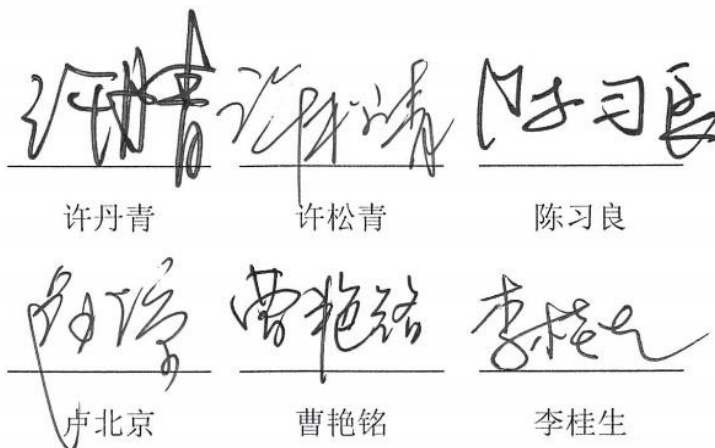 许丹青 许松青 陈习良
许丹青 许松青 陈习良
曹艳铭 李桂生
卢北京 曹艳铭 李桂生